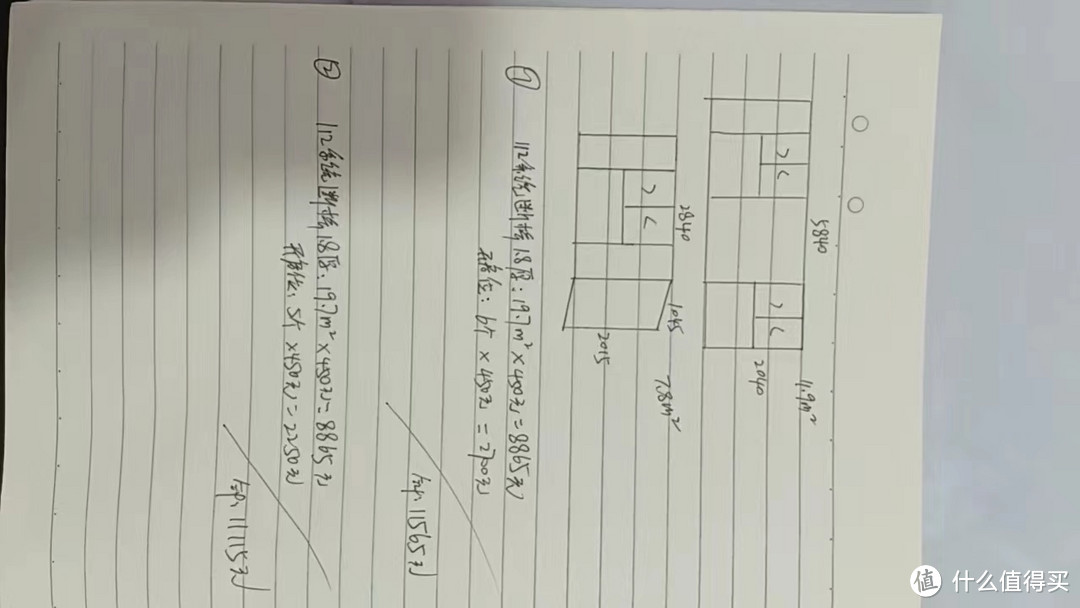 5840
2040
11.9m²
2840
1045
2015
7.8m²
① 112系统断桥1.8厚:19.7m²×450元=8865元
开启位:6个×450元=2700元
合计:11565元
② 112系统断桥1.8厚:19.7m²×450元=8865元
开启位:5个×450元=2250元
合计:11115元
值 什么值得买